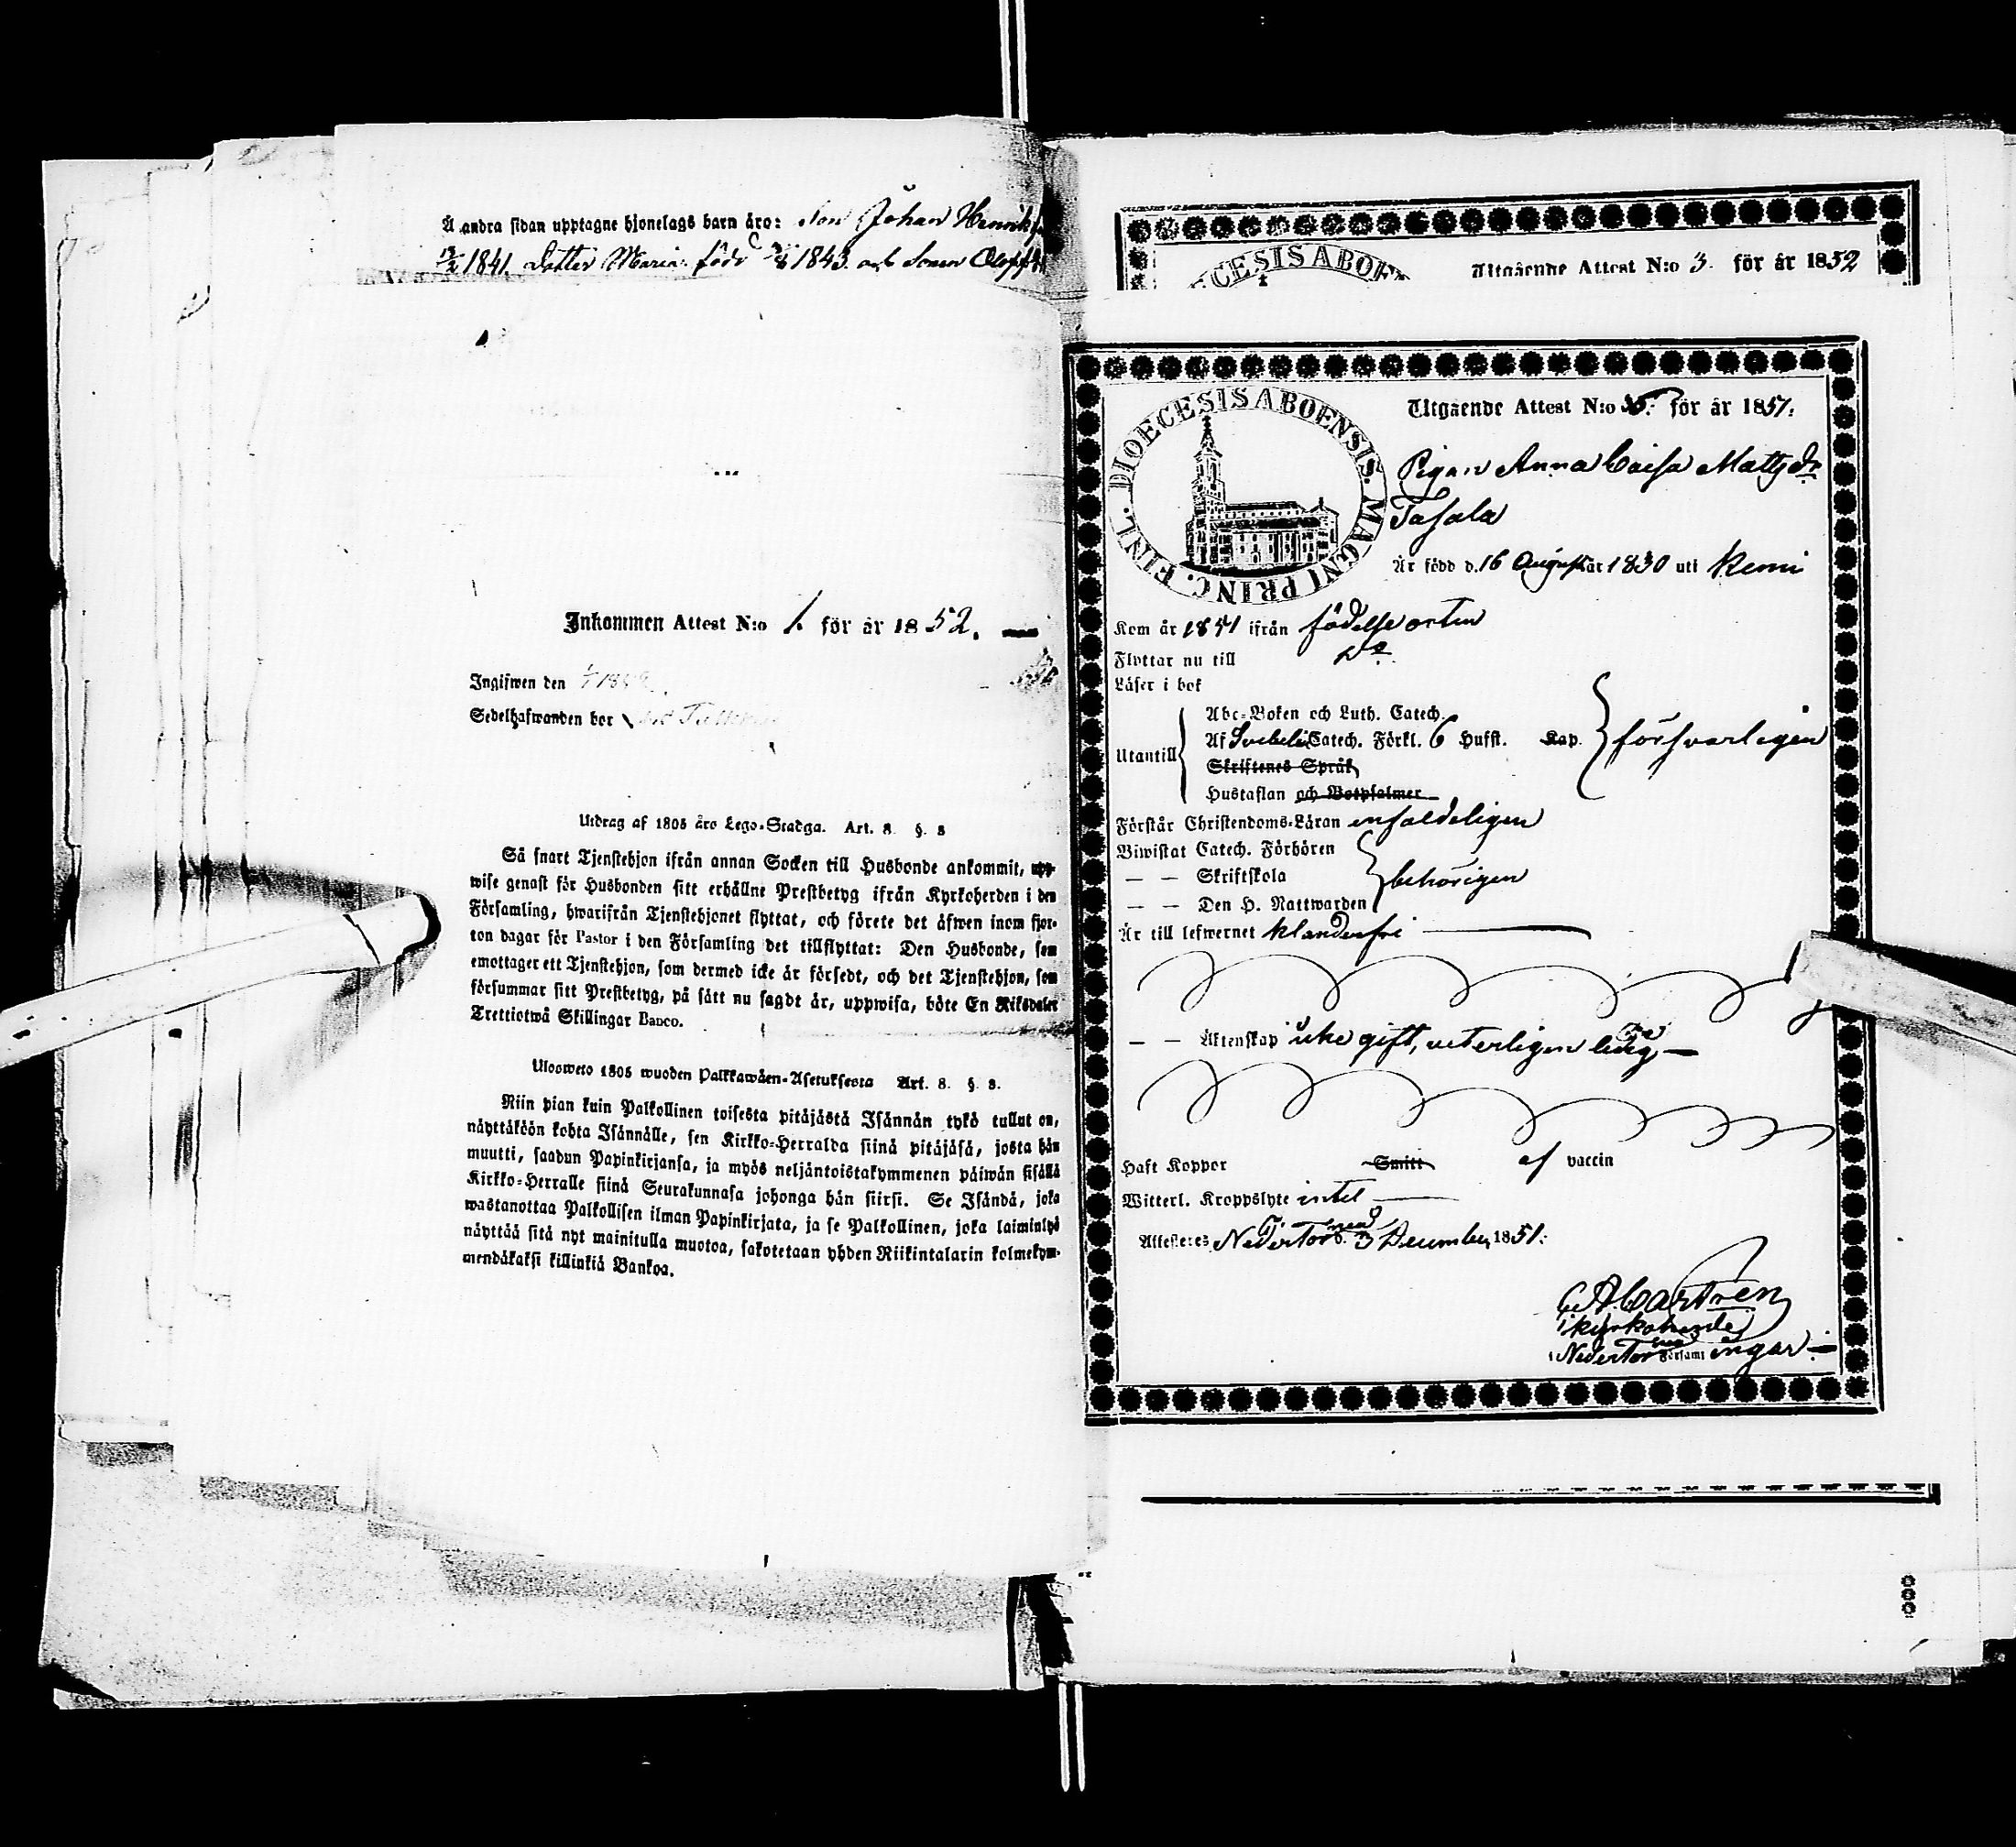 Å andra sidan upptagne hjonelags barn äro: Son Johan Henrik
1841. Dotter Maria född 1843. och Sonen Oloff
Inkommen Attest N:o 1. för år 1852.
Ingifwen den
Sedelhafwanden bor
Utdrag af 1805 års Lego-Stadga. Art. 8. §. 8
Så snart Tjenstehjon ifrån annan Socken till Husbonde ankommit, upp-
wise genast för Husbonden sitt erhållne Prestbetyg ifrån Kyrkoherden i den
Församling, hwarifrån Tjenstehjonet flyttat, och förete det äfwen inom fjor-
ton dagar för Pastor i den Församling det tillflyttat: Den Husbonde, som
emottager ett Tjenstehjon, som dermed icke är försedt, och det Tjenstehjon, som
försummar sitt Prestbetyg, på sätt nu sagdt är, uppwisa, böte En Riksdaler
Trettiotwå Skillingar Banco.
Uloosweto 1805 wuoden Palkkawäen-Asetuksesta Art. 8. §. 8.
Niin pian kuin Palkollinen toisesta pitäjästä Isännän tykö tullut on,
näyttäköön kohta Isännälle, sen Kirkko-Herralda siinä pitäjäsä, josta hän
muutti, saadun Papinkirjansa, ja myös neljäntoistakymmenen päiwän sisällä
Kirkko-Herralle siinä Seurakunnasa johonga hän siirsi. Se Isändä, joka
wastanottaa Palkollisen ilman Papinkirjata, ja se Palkollinen, joka laiminlyö
näyttää sitä nyt mainitulla muotoa, sakotetaan yhden Riikintalarin kolmekym-
mendäkaksi killinkiä Bankoa.
Utgående Attest N:o 3. för år 1852
DIOECESIS ABOENSIS. MAGNI PRINC. FINL.
Utgående Attest N:o för år 1851.
Pigan Anna Caisa Mattsdr
Tasala
Är född d. 16 August år 1830 uti Kemi
Kom år 1851 ifrån födelse orten
Flyttar nu till Do
Läser i bok
Utantill
Abc-Boken och Luth. Catech.
Af Svebelii Catech. Förkl. 6 Hufst. Kap. försvarligen
Skriftenes Språk
Hustaflan och Botpsalmer
Förstår Christendoms-Läran enfaldeligen
Biwistat Catech. Förhören
— — Skriftskola behörigen
— — Den H. Nattwarden
Är till lefwernet klanderfri
— — Äktenskap icke gift, veterligen ledig
Haft Koppor Smitt af vaccin
Witterl. Kroppslyte intet
Attesteras NederTorneå d. 3 December 1851.
C A Castrén
Kyrkoherde
i NederTorneå Församlingar